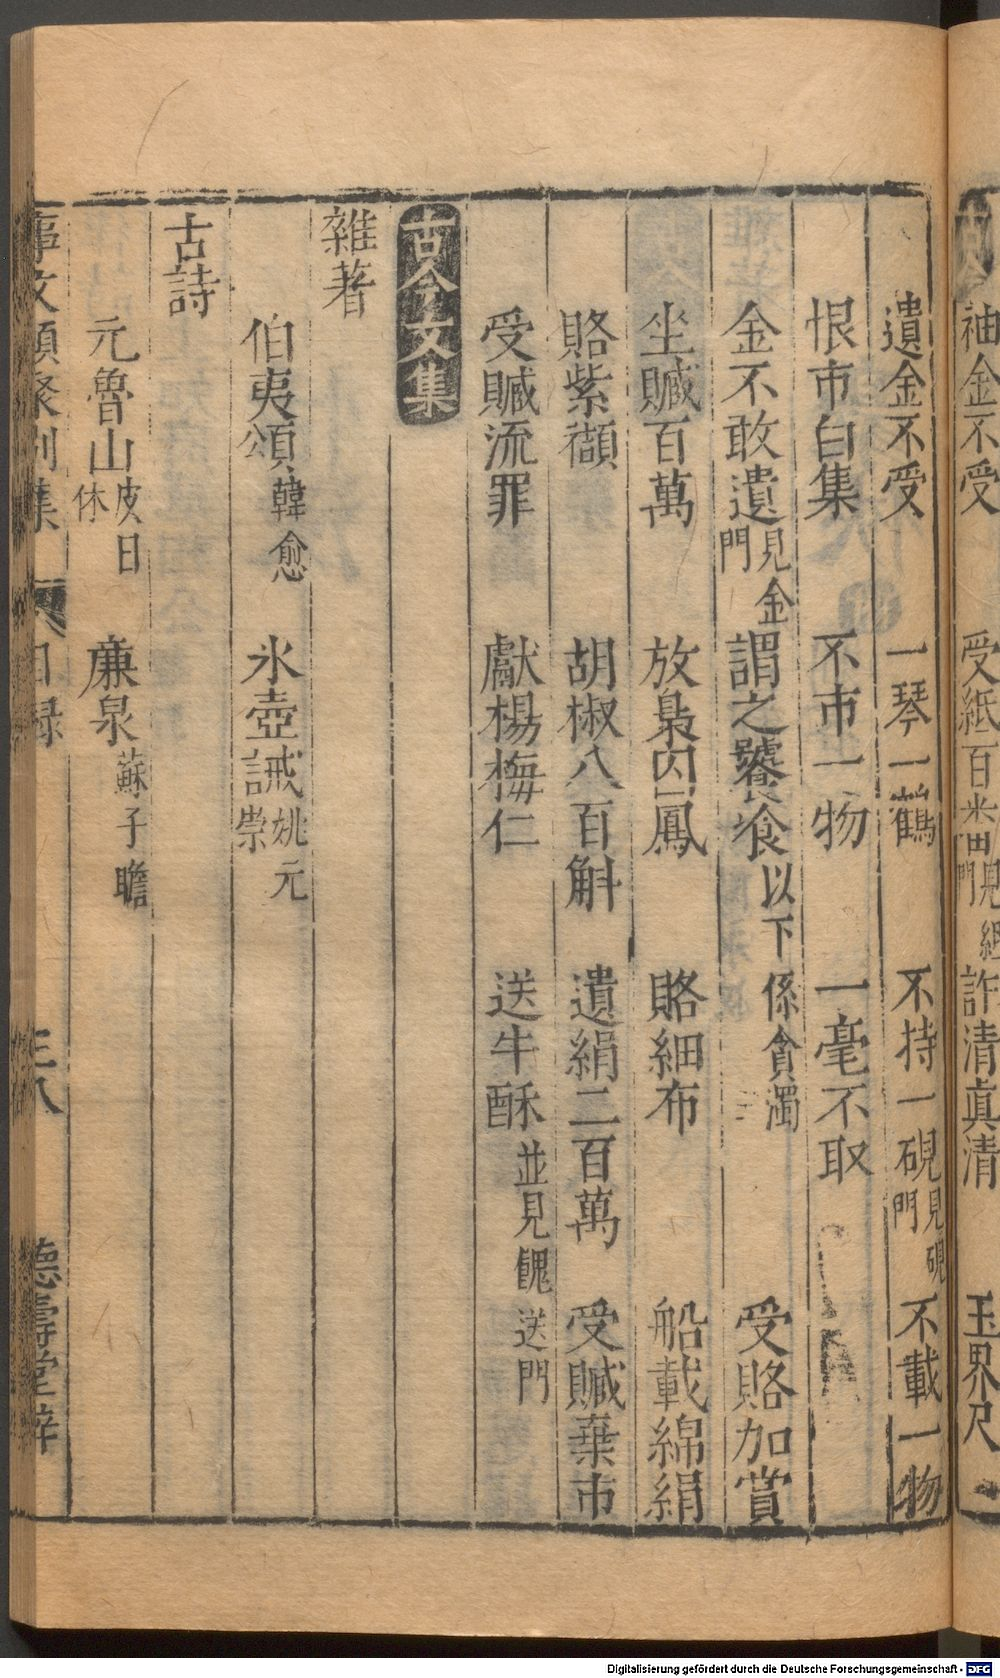 袖金不受 受紙百 見 門 詐清真清 玉界尺
遺金不受 一琴一鶴 不持一硯見硯門 不載一物
恨市白集 不市一物 一毫不取
金不敢遺見金門 謂之饕餮以下係貪濁 受賂加賞
坐贓百萬 放梟囚鳳 賂細布 船載綿絹
賂紫纈 胡椒八百斛 遺絹二百萬 受贓棄市
受贓流罪 獻楊梅仁 送牛酥並見餽送門
古今文集
雜著
伯夷頌韓愈 氷壺誡姚元崇
古詩
元魯山皮日休 廉泉蘇子瞻
事文類聚別集 目録 三八 德壽堂梓
Digitalisierung gefördert durch die Deutsche Forschungsgemeinschaft - DFG